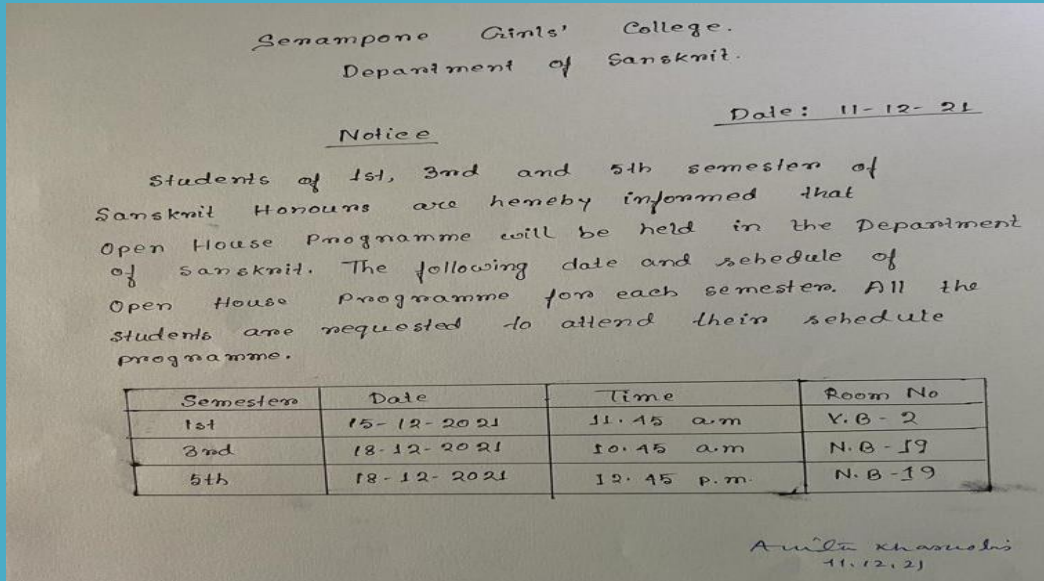 Serampore Girls' College.
Department of Sanskrit.
Date: 11-12-21
Notice
Students of 1st, 3rd and 5th semester of
Sanskrit Honours are hereby informed that
Open House Programme will be held in the Department
of Sanskrit. The following date and schedule of
Open House Programme for each semester. All the
students are requested to attend their schedule
programme.
Semester Date Time Room No
1st 15-12-2021 11.45 a.m V.B-2
3rd 18-12-2021 10.45 a.m N.B-19
5th 18-12-2021 12.45 p.m. N.B-19
11.12.21